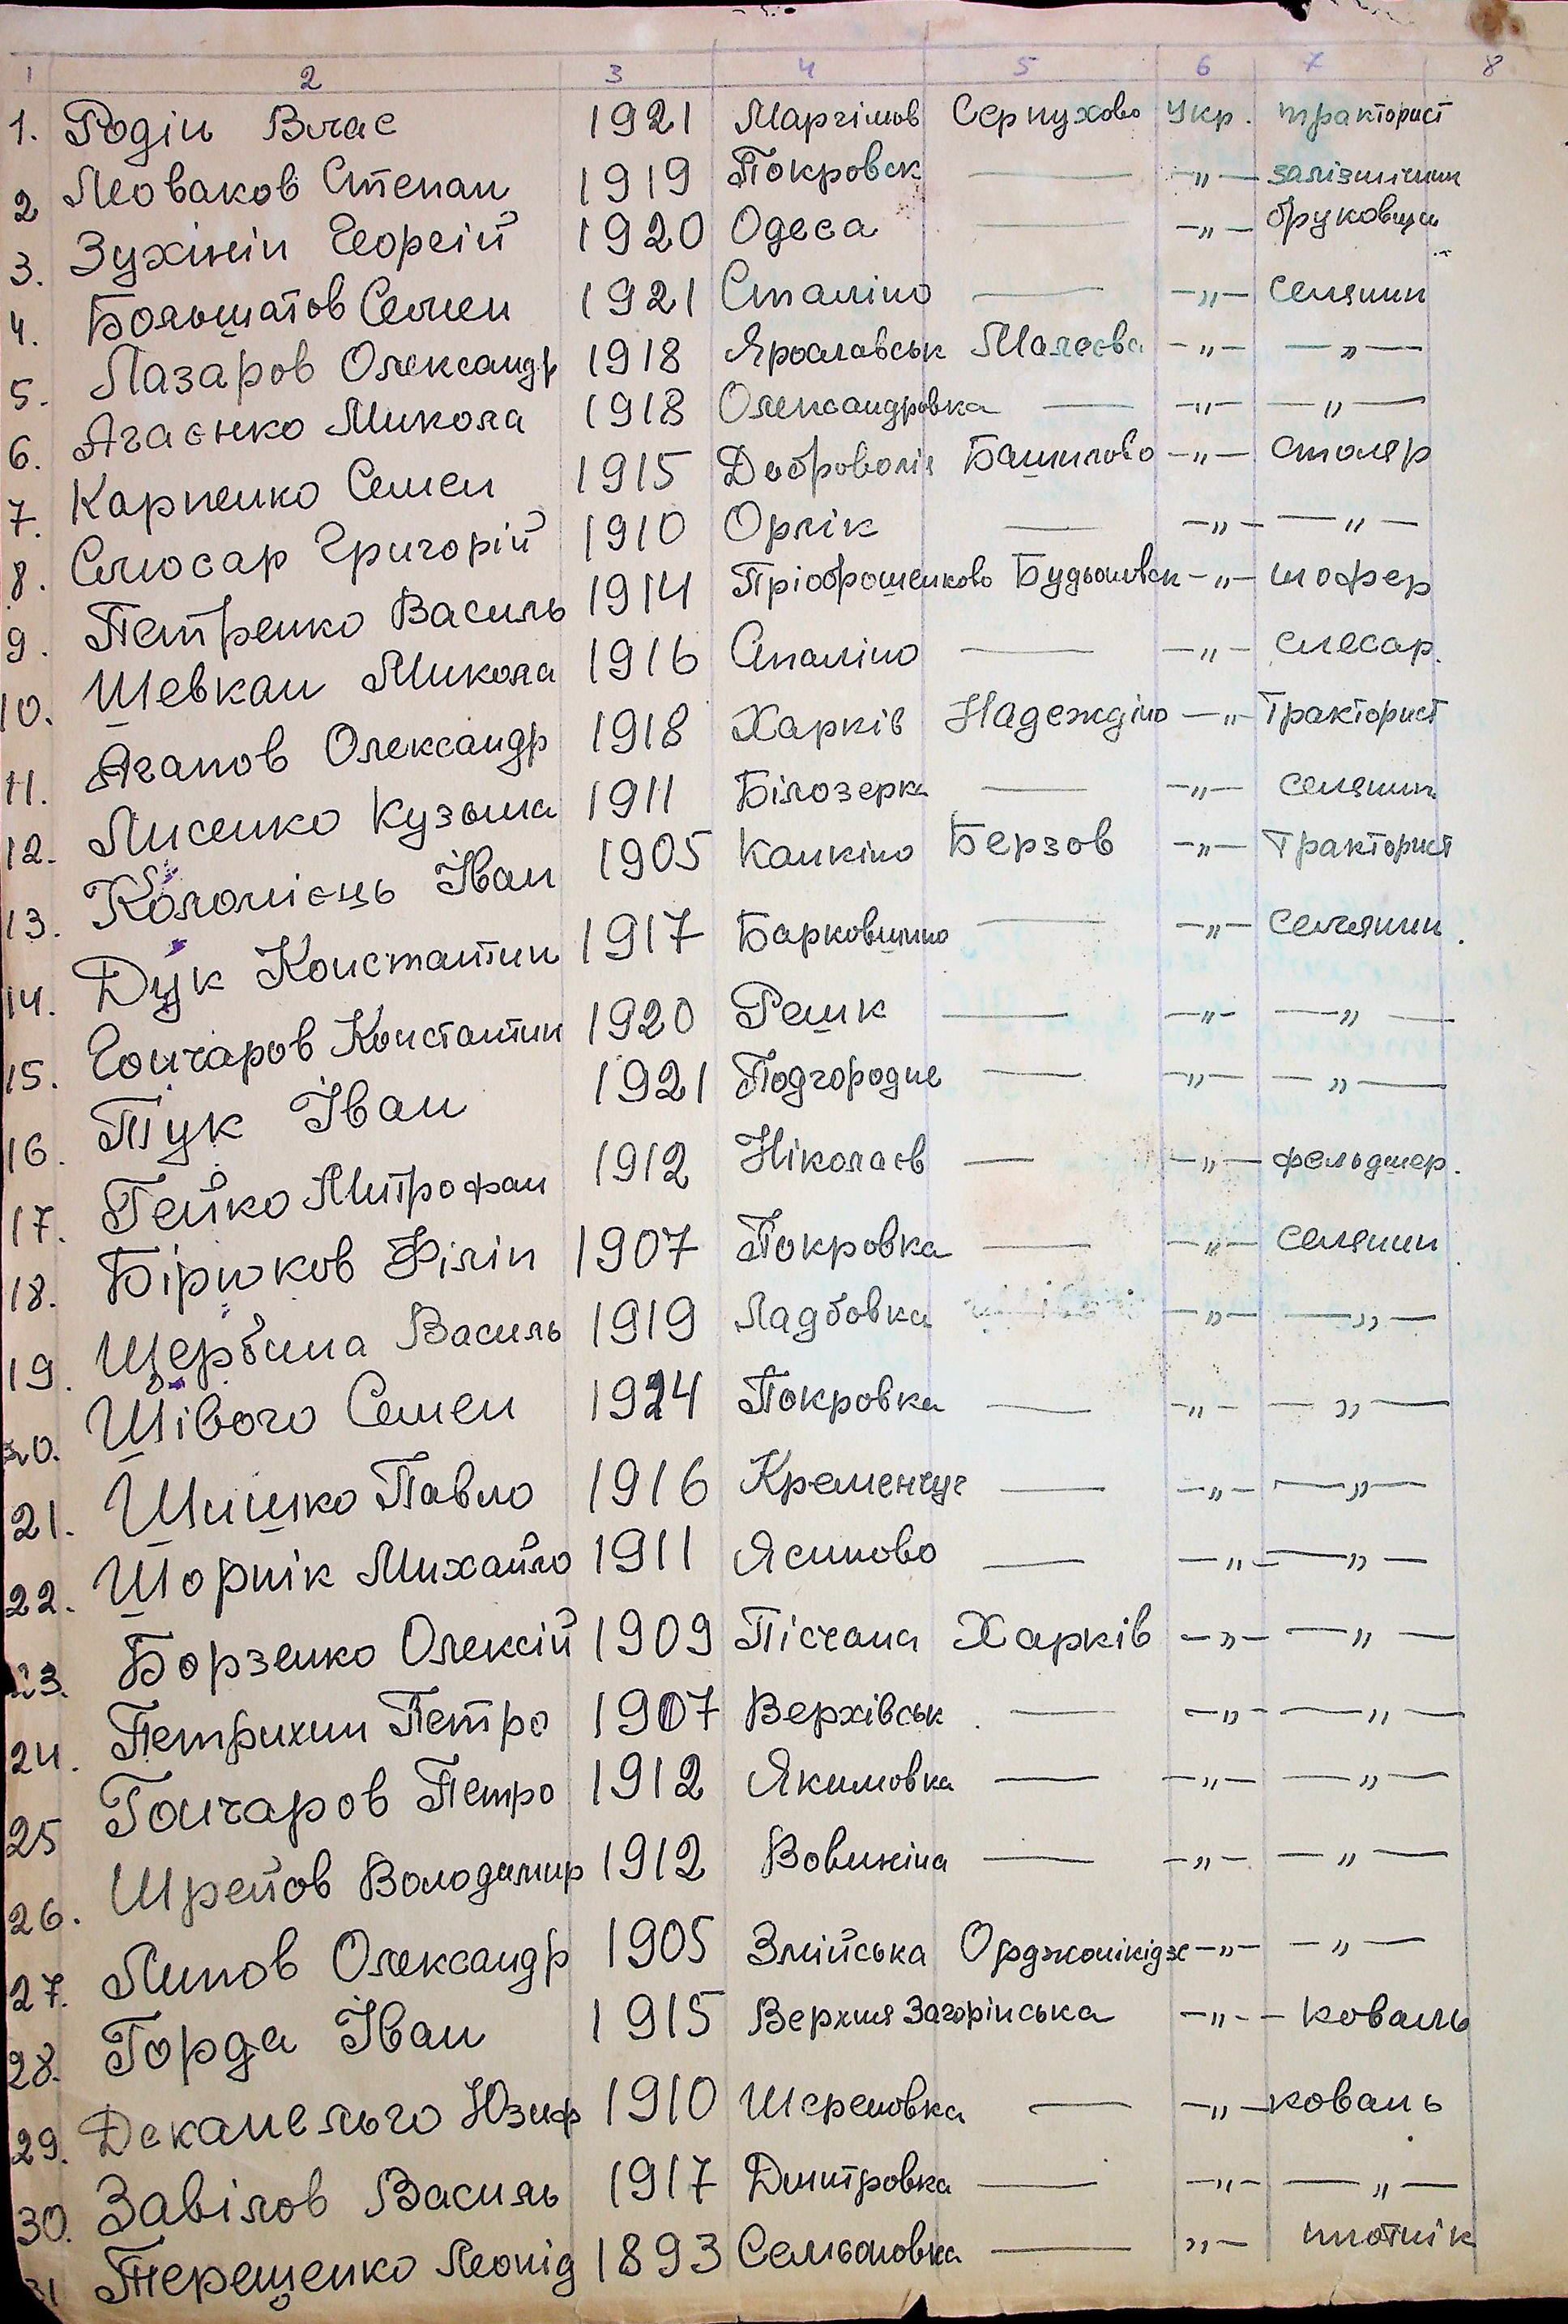 1 2 3 4 5 6 7 8
1. Родін Влас 1921 Маргімов Серпухово Укр. тракторист
2 Леоваков Степан 1919 Покровск — —„— залізничник
3. Зухінін Георгій 1920 Одеса — —„— бруковщик
4. Большатов Семен 1921 Сталіно — —„— селянин
5. Лазаров Олександр 1918 Ярославськ Малеева —„— —„—
6. Агаєнко Микола 1918 Олександровка — —„— —„—
7. Карпенко Семен 1915 Доброволія Башилово —„— столяр
8. Слюсар Григорій 1910 Орлік — —„— —„—
9. Петренко Василь 1914 Пріображенково Будьоновск —„— шофер
10. Шевкан Микола 1916 Сталіно — —„— слесар.
11. Агапов Олександр 1918 Харків Надеждіно —„— Тракторист
12. Лисенко Кузьма 1911 Білозерка — —„— селянин
13. Коломієць Іван 1905 Канкіно Берзов —„— Тракторист
14. Дук Константин 1917 Барковшино — —„— селянин.
15. Гончаров Константин 1920 Решк — —„— —„—
16. Тук Іван 1921 Подгородне — —„— —„—
17. Гейко Митрофан 1912 Ніколаєв — —„— фельдшер.
18. Бірюков Філіп 1907 Покровка — —„— селянин
19. Щербина Василь 1919 Ладбовка —„— —„—
20. Шівого Семен 1924 Покровка — —„— —„—
21. Шишко Павло 1916 Кременчуг — —„— —„—
22. Шорнік Михайло 1911 Ясиново — —„— —„—
23. Борзенко Олексій 1909 Пісчана Харків —„— —„—
24. Петрихин Петро 1907 Верхівськ. — —„— —„—
25 Гончаров Петро 1912 Якимовка — —„— —„—
26. Шрейов Володимир 1912 Вовикіна — —„— —„—
27. Линов Олександр 1905 Змійська Орджонікідзе —„— —„—
28. Горда Іван 1915 Верхня Загорінська —„— — коваль
29. Деканельго Юзиф 1910 Шереповка — —„— коваль
30. Завілов Василь 1917 Дмитровка — —„— —„—
31 Терещенко Леонід 1893 Семьоновка — „— плотнік